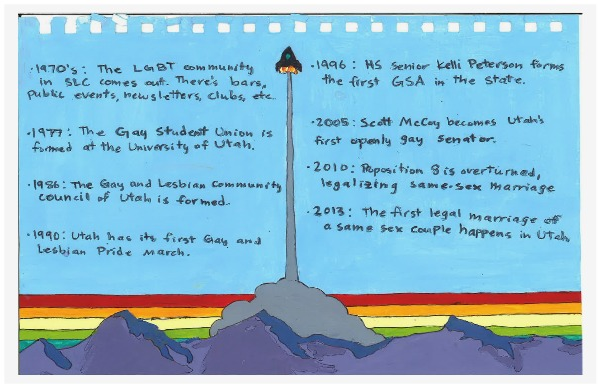 · 1970's: The LGBT community
in SLC comes out. There's bars,
public events, newsletters, clubs, etc.
· 1977: The Gay Student Union is
formed at the University of Utah.
· 1986: The Gay and Lesbian community
council of Utah is formed.
· 1990: Utah has its first Gay and
Lesbian Pride march.
· 1996: HS senior Kelli Peterson forms
the first GSA in the state.
· 2005: Scott McCoy becomes Utah's
first openly gay senator.
· 2010: Proposition 8 is overturned,
legalizing same-sex marriage
· 2013: The first legal marriage of
a same sex couple happens in Utah